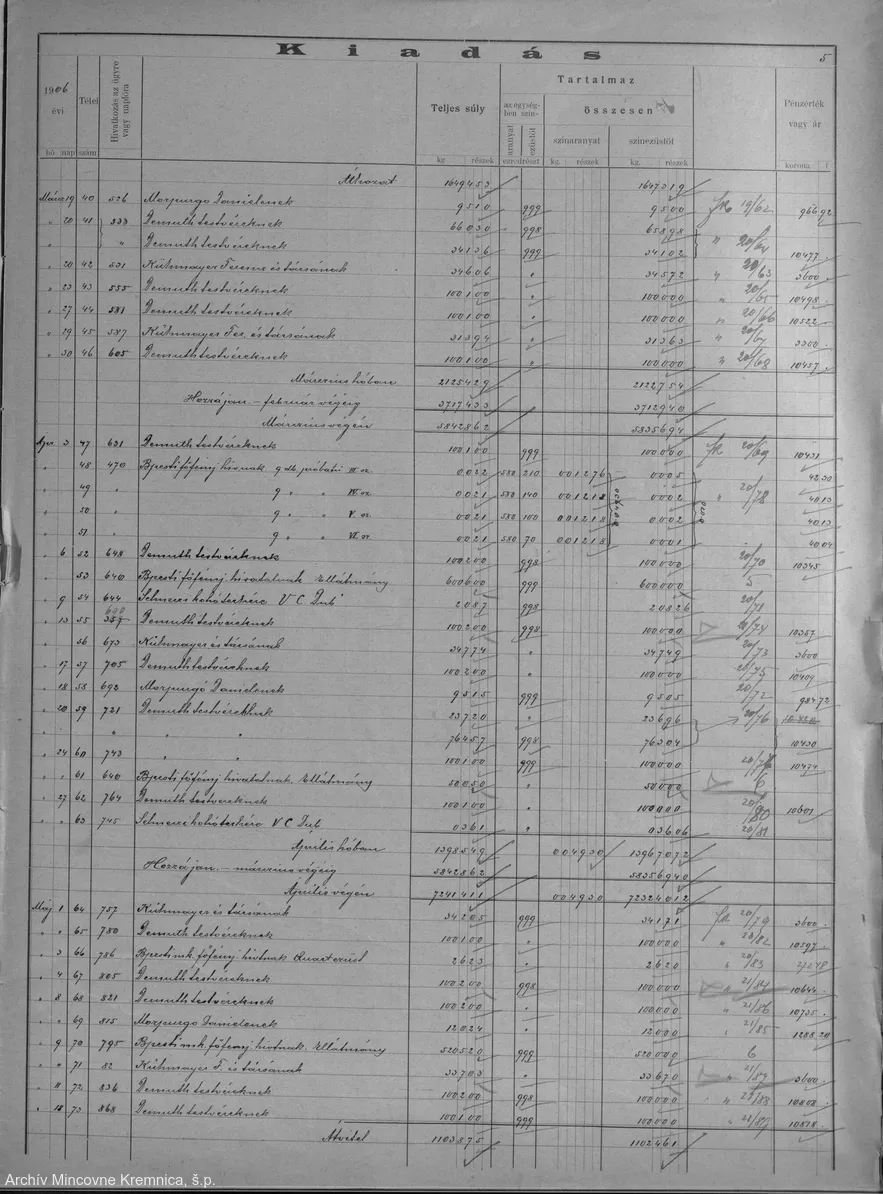 Kiadás
5
1906 évi
hó nap
Tétel szám
Hivatkozás az ügyre vagy naplóra
Teljes súly
kg. részek
Tartalmaz
az egységben szin-
aranyat ezüstöt
ezredrészt
összesen
szinaranyat
kg. részek
szinezüstöt
kg. részek
Pénzérték vagy ár
korona f
Áthozat 1649453 1647319
Márcz 19 40 526 Morpurgo Danielenek 9510 999 9500 19/62 966.92
" 20 41 533 Demuth testvéreknek 66030 998 65898
" " Demuth testvéreknek 34136 999 34102 " 20/64 10477
" 20 42 531 Kühmayer Ferencz és társának 34606 " 34572 " 20/63 3600
" 23 43 555 Demuth testvéreknek 100100 " 100000 " 20/65 10498
" 27 44 581 Demuth testvéreknek 100100 " 100000 " 20/66 10522
" 29 45 587 Kühmayer Fer. és társának 31394 " 31363 " 20/67 3300
" 30 46 605 Demuth testvéreknek 100100 " 100000 " 20/68 10457
Márczius hóban 2125429 2122754
Hozzá jan. – február végéig 3717433 3712940
Márczius végén 5842862 5835694
Apr. 3 47 631 Demuth testvéreknek 100100 999 100000 20/69 10431
" 48 470 Bpesti főfémj. hivnak 9 db. próbatű III sz. 0022 580 210 001276 0005 4230
" 49 " 9 " " IV sz. 0021 580 140 001218 0002 " 20/78 4013
" 50 " 9 " " V sz. 0021 580 100 001218 0002 4013
" 51 " 9 " " VI sz. 0021 580 70 001218 0001 4004
" 6 52 648 Demuth testvéreknek 100200 998 100000 20/70 10345
" 53 640 Bpesti főfémj. hivatalnak Ellátmány 600600 999 600000 5
" 9 54 644 Selmeczi kohó terhére V C Dub 2087 998 20826 20/71
" 13 55 690 Demuth testvéreknek 100200 998 100000 20/74 10357
" 56 673 Kühmayer és társának 34774 " 34749 20/73 3600
" 17 57 705 Demuth testvéreknek 100200 " 100000 20/75 10409
" 18 58 692 Morpurgó Danielenek 9515 999 9505 20/72 984.72
" 20 59 721 Demuth testvéreknek 23720 " 23696 20/76
" " " 76457 998 76304 10430
" 24 60 743 100100 999 100000 10474
" " 61 640 Bpesti főfémj. hivatalnak. Ellátmány 50050 " 50000 6
" 27 62 764 Demuth testvéreknek 100100 " 100000 20/80 10601
" " 63 745 Selmeczi kohó terhére V C Dub. 0361 " 03606 20/81
Április hóban 1398549 004930 13967072
Hozzá jan. – márczius végéig 5842862 58356940
Április végén 7241411 004930 72324012
Máj 1 64 757 Kühmayer és társának 34205 999 34171 20/79 3600
" " 65 780 Demuth testvéreknek 100100 " 100000 " 20/82 10597
" 3 66 786 Bpesti mk. főfémj. hivtnak 2623 " 2620 " 20/83
" 4 67 805 Demuth testvéreknek 100200 998 100000 " 21/84 10644
" 8 68 821 Demuth testvéreknek 100200 " 100000 " 21/86 10735
" " 69 815 Morpurgo Danielenek 12024 " 12000 " 21/85 1288.20
" 9 70 795 Bpesti mk. főfémj. hivtnak. Ellátmány 520520 999 520000 6
" " 71 82 Kühmayer F. és társának 33703 " 33670 " 21/87 3600
" 11 72 836 Demuth testvéreknek 100200 998 100000 " 21/88 10808
" 18 73 868 Demuth testvéreknek 100100 999 100000 " 21/89 10818
Átvitel 1103875 1102461
Archív Mincovne Kremnica, š.p.